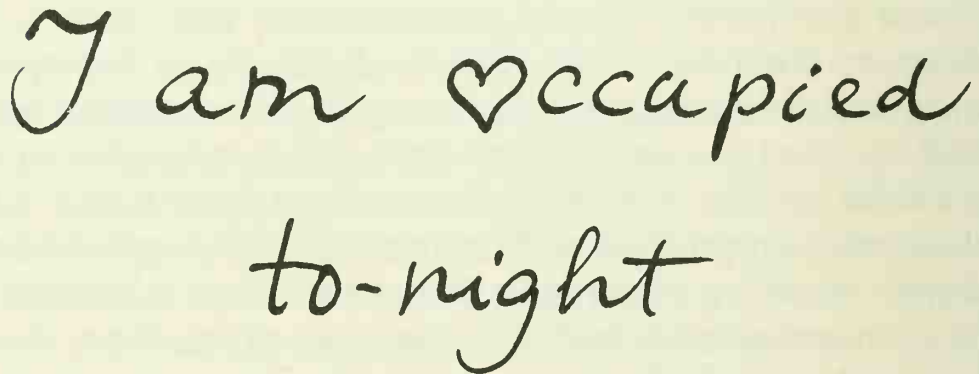 I am ♡ccupied
to-night